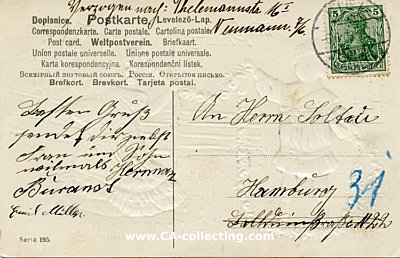 Verzogen nach: Thelemannstr 16 I
Neumann.
Dopisnice. Postkarte Levelező-Lap.
Correspondenzkarte. Carte postale. Cartolina postale
Post card. Weltpostverein. Briefkaart.
Union postale universelle. Unione postale universale.
Karta korespondencyjna. Korespondenční lístek.
Всемірный почтовый союзъ. Россія. Открытое письмо.
Brefkort. Brevkort. Tarjeta postal.
5 5
Besten Gruß
sendet dir nebst
Frau und Sohn
nochmals Herman
Emil Müller
An Herrn Soltau
Hamburg
31
22
Serie 195.
www.CA-collecting.com